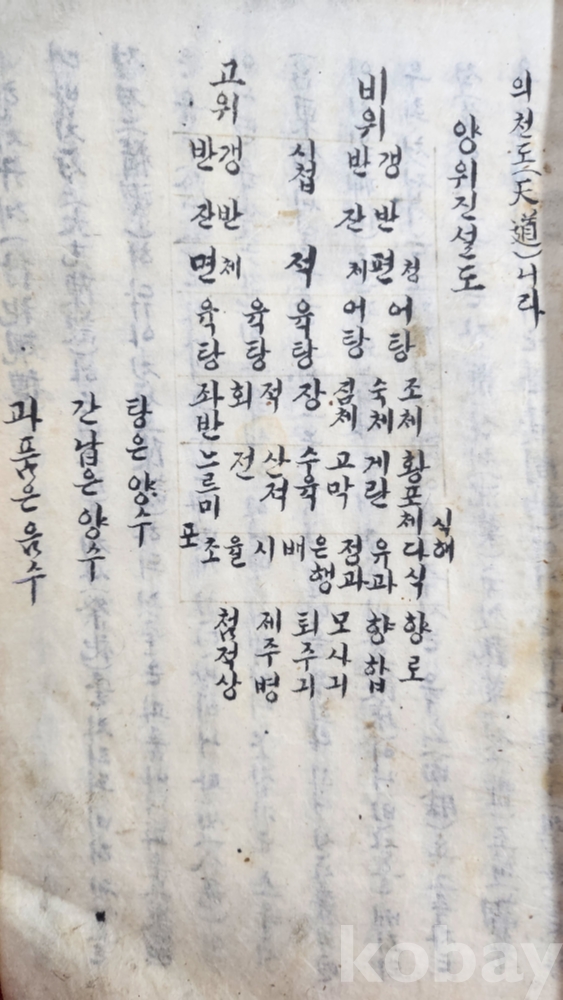 의천도(天道)니라
양위진설도
비위 고위
갱 반 시첩 갱 반
반 잔 반 잔
청 편 체 적 체 면
어탕 어탕 육탕 육탕 육탕
조체 숙체 침체 장 적 회 좌반
황포체 계란 고막 수육 산적 전 느르미
식해 다식 유과 정과 은행 배 시 율 조 포
향로 향합 모사긔 퇴주긔 제주병 첨적상
탕은 양수
간납은 양수
과품은 음수
kobay